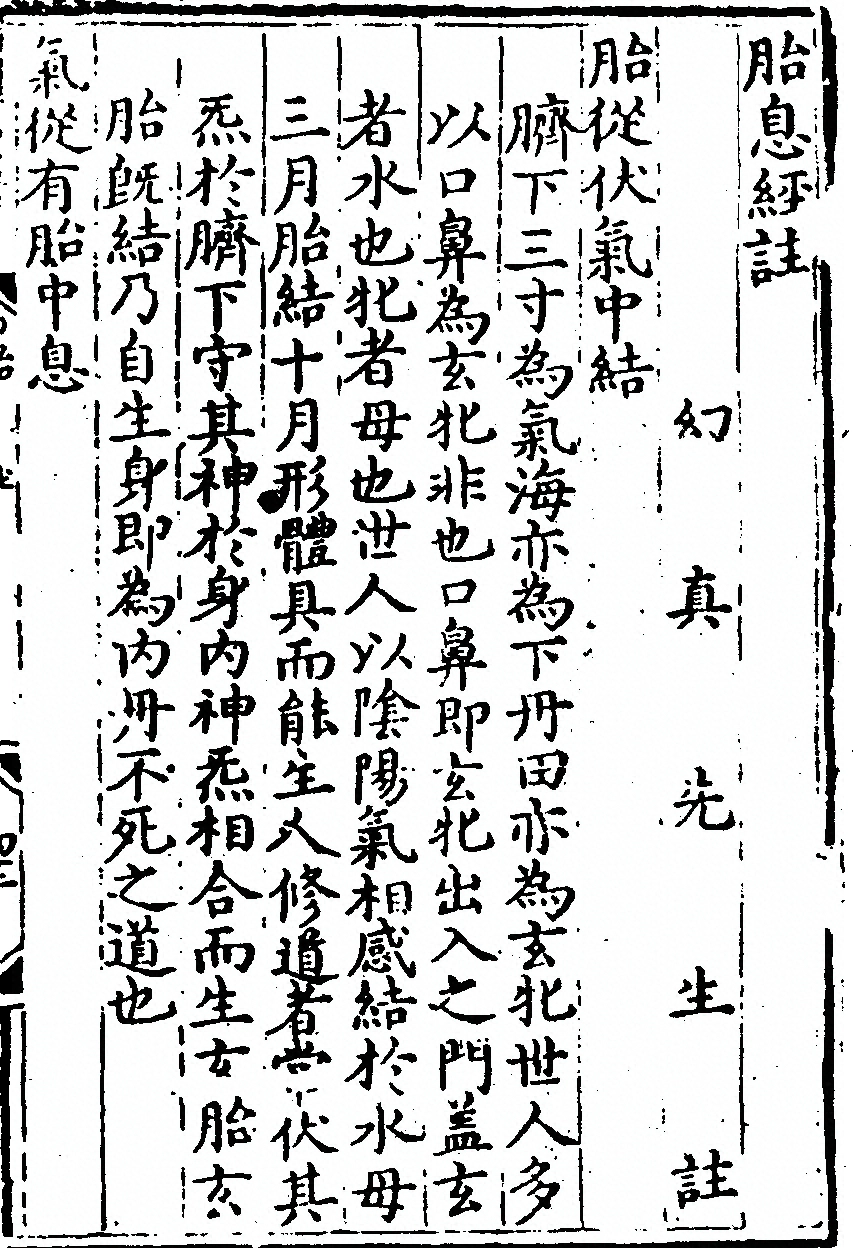 胎息經註
幻真先生註
胎從伏氣中結
臍下三寸為氣海亦為下丹田亦為玄牝世人多
以口鼻為玄牝非也口鼻即玄牝出入之門盖玄
者水也牝者母也世人以陰陽氣相感結於水母
三月胎結十月形體具而能生人修道者常伏其
炁於臍下守其神於身内神炁相合而生玄胎玄
胎既結乃自生身即為内丹不死之道也
氣從有胎中息